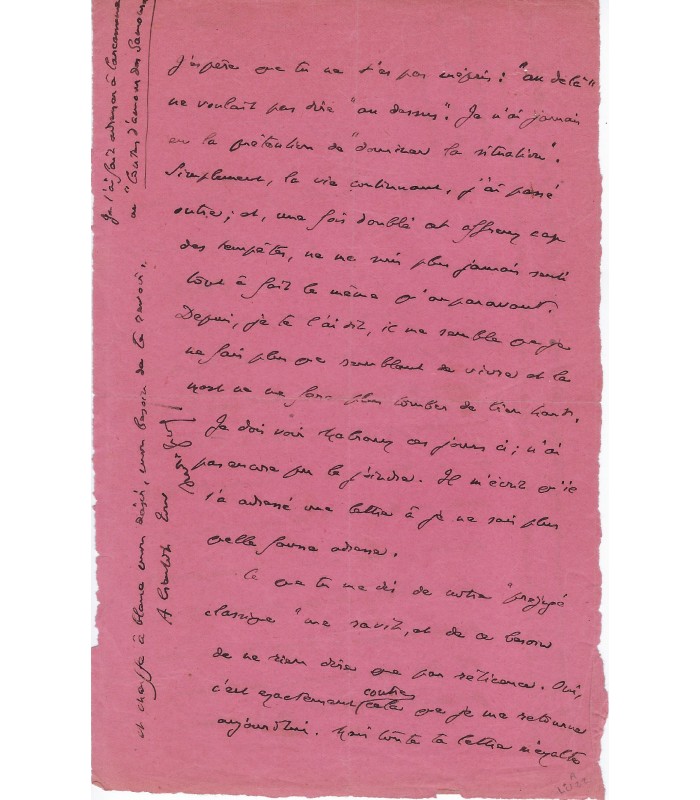 J'espère que tu ne t'es pas mépris : "au delà"
ne voulait pas dire "au dessus". Je n'ai jamais
eu la prétention de "dominer la situation".
Simplement, la vie continuant, j'ai passé
outre ; et, une fois doublé cet affreux cap
des tempêtes, ne me suis plus jamais senti
tout à fait le même qu'auparavant.
Depuis, je te l'ai dit, il me semble que je
ne fais plus que semblant de vivre et la
mort ne me fera plus tomber de bien haut.
Je dois voir Malraux ces jours ci ; n'ai
pas encore pu le joindre. Il m'écrit qu'il
t'a adressé une lettre à je ne sais plus
quelle fausse adresse.
Ce que tu me dis de notre "préjugé
classique" me ravit, et de ce besoin
de ne rien dire que par réticence. Oui,
c'est exactement contre cela que je me retourne
aujourd'hui. Mais toute ta lettre m'exalte
et chauffe à blanc mon désir, mon besoin de te revoir.
A bientôt
André Gide
Je t'ai fait adresser à Carcassonne
"Contes d'amour des Samouraï"